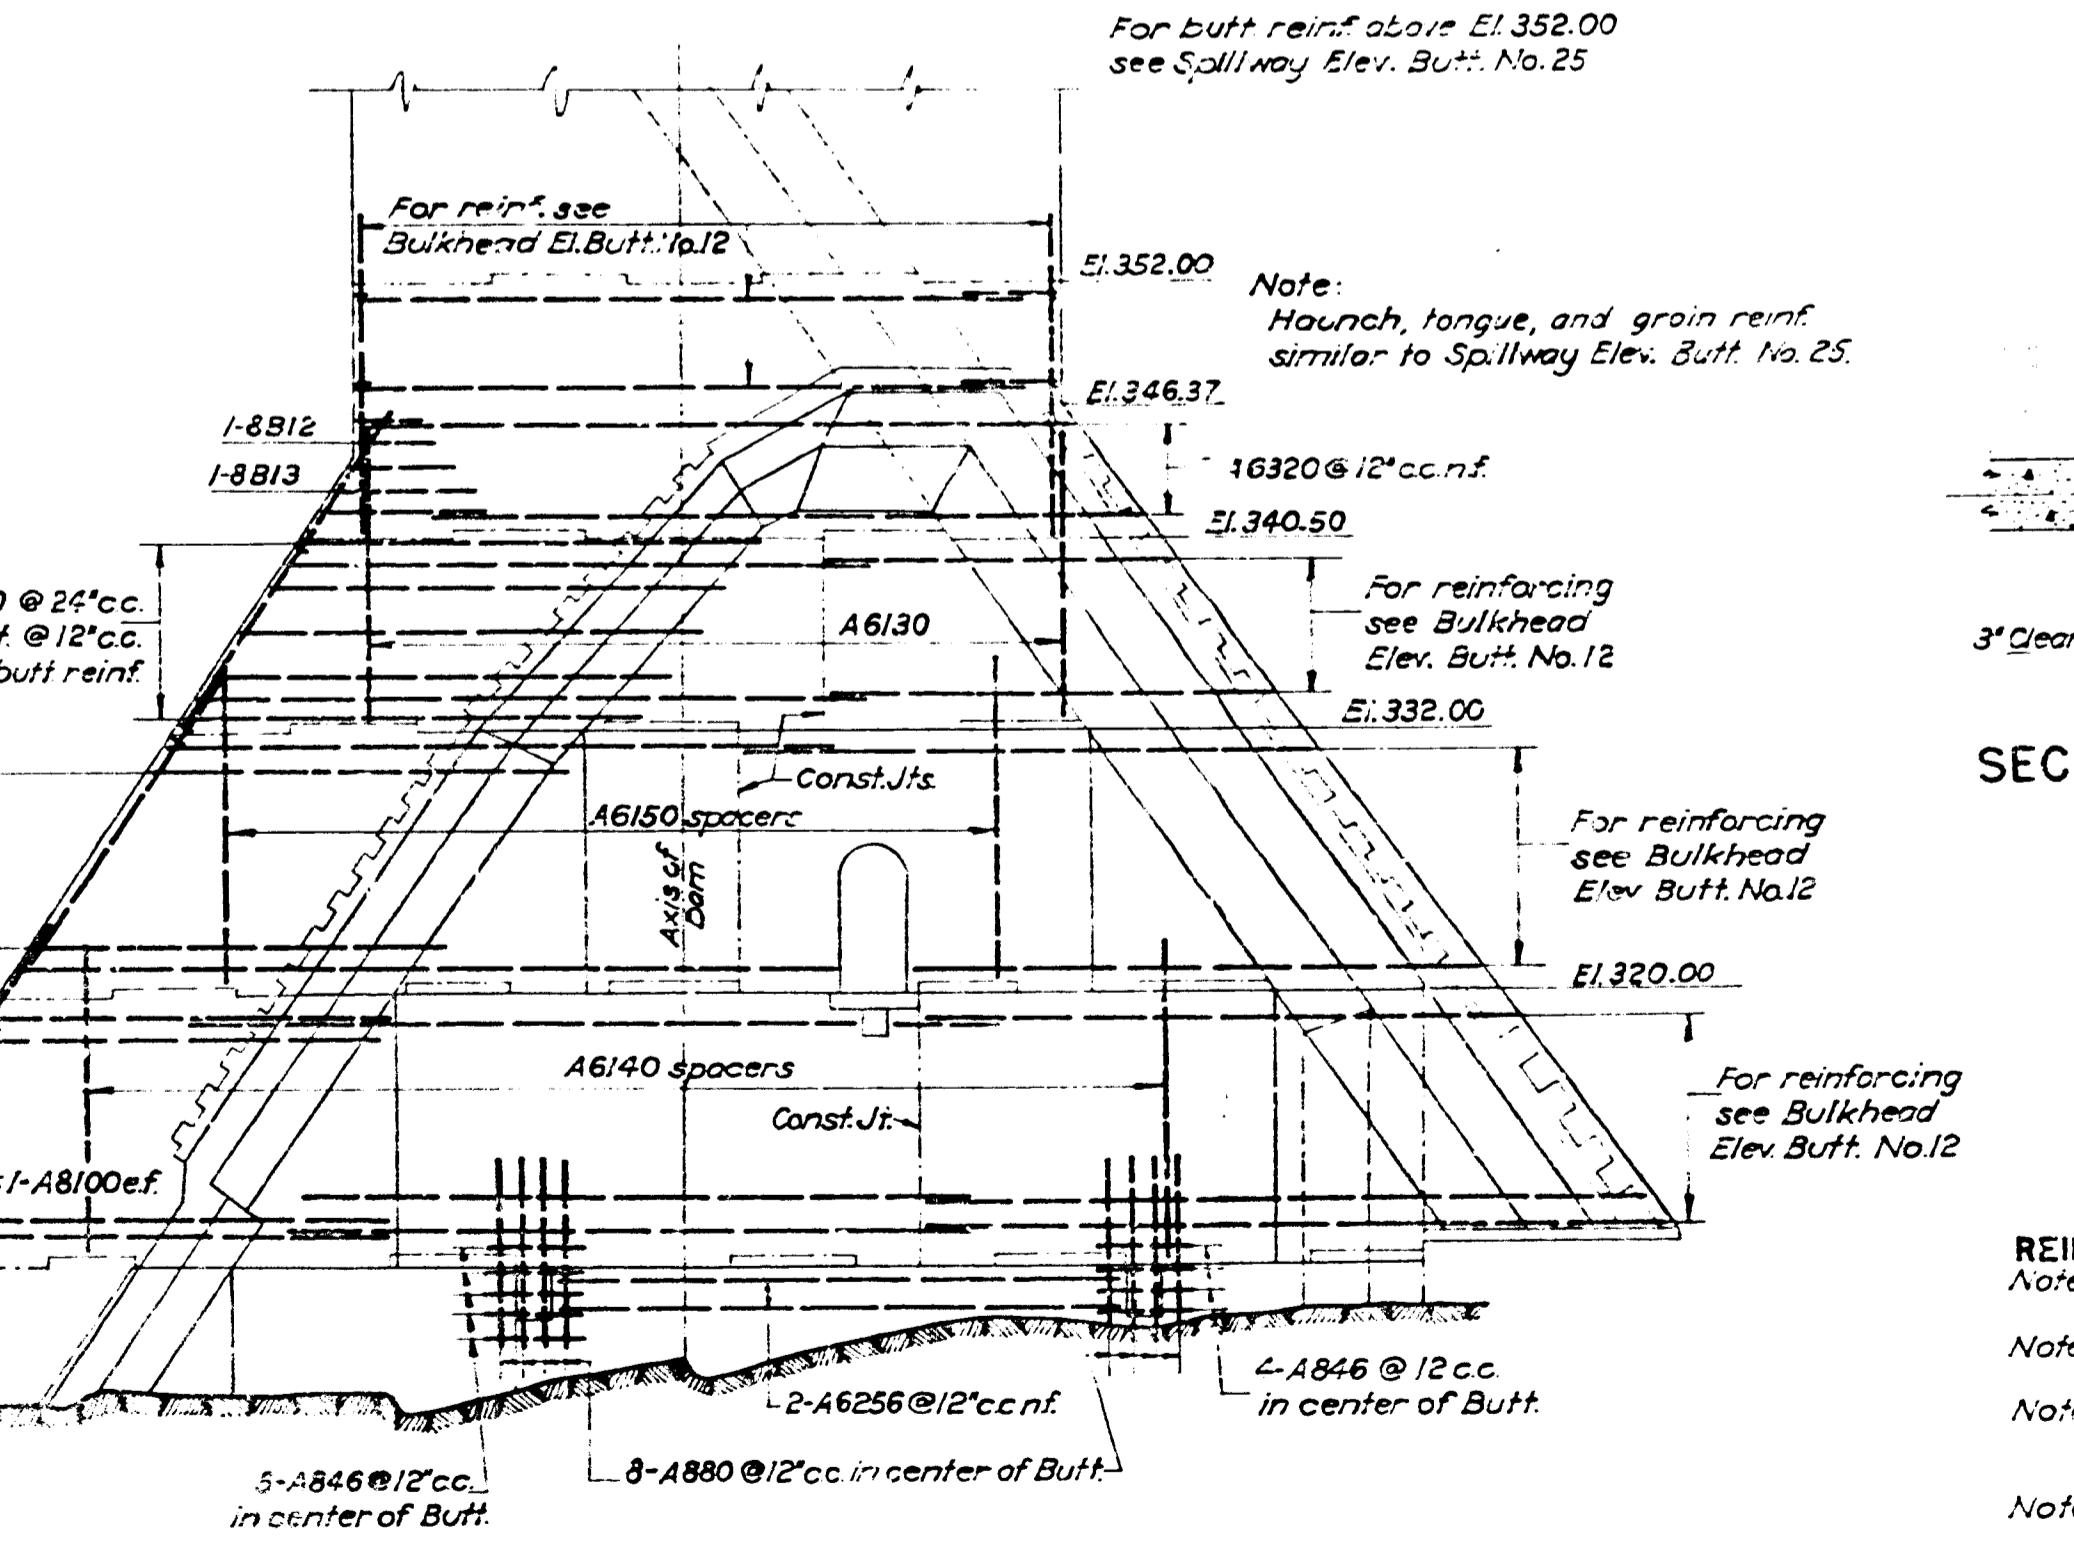 For butt. reinf. above El. 352.00
see Spillway Elev. Butt. No. 25
For reinf. see
Bulkhead El. Butt. No. 12
El. 352.00
Note:
Haunch, tongue, and groin reinf.
similar to Spillway Elev. Butt. No. 25.
El. 346.37
1-8B12
1-8B13
A6320 @ 12" c.c. n.f.
El. 340.50
@ 24" c.c.
@ 12" c.c.
butt reinf.
A6130
For reinforcing
see Bulkhead
Elev. Butt. No. 12
3" Clear
El. 332.00
SEC
Const. Jts.
A6150 spacers
Axis of
Dam
For reinforcing
see Bulkhead
Elev Butt. No. 12
El. 320.00
A6140 spacers
Const. Jt.
For reinforcing
see Bulkhead
Elev. Butt. No. 12
1-A8100 e.f.
REI
Note
Note
Note
Note
4-A846 @ 12 c.c.
in center of Butt.
2-A6256 @ 12" c.c. n.f.
8-A880 @ 12" c.c. in center of Butt.
-A846 @ 12" c.c.
in center of Butt.